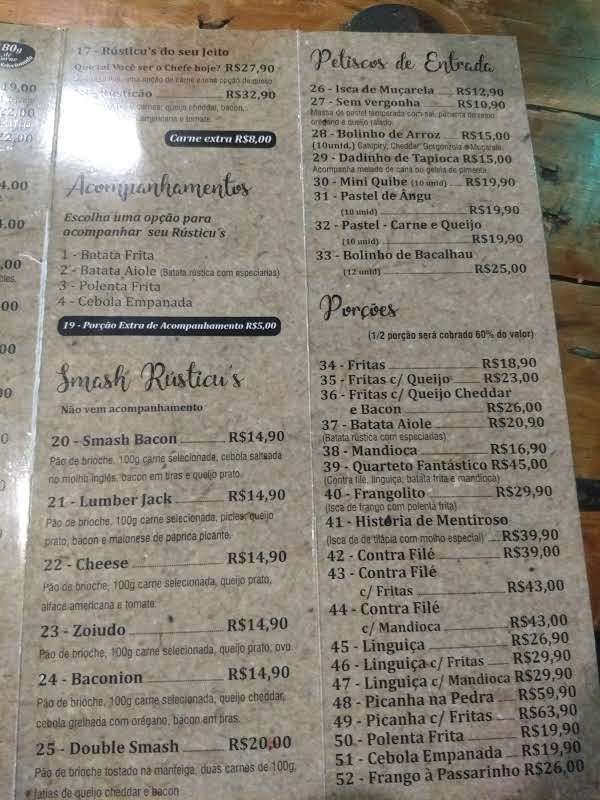 80g
de
carne
selecionada
19,00
22,00
22,00
4,00
4.00
,00
00
00
0
0
17 - Rústicu's do seu Jeito
Que tal Você ser o Chefe hoje? R$27,90
uma opção de carne e uma opção de queijo
Rusticão R$32,90
carnes, queijo cheddar, bacon,
americana e tomate.
Carne extra R$8,00
Acompanhamentos
Escolha uma opção para
acompanhar seu Rústicu´s
1 - Batata Frita
2 - Batata Aiole (Batata rústica com especiarias)
3 - Polenta Frita
4 - Cebola Empanada
19 - Porção Extra de Acompanhamento R$5,00
Smash Rústicu's
Não vem acompanhamento
20 - Smash Bacon R$14,90
Pão de brioche, 100g carne selecionada, cebola salteada
no molho inglês, bacon em tiras e queijo prato.
21 - Lumber Jack R$14,90
Pão de brioche, 100g carne selecionada, picles, queijo
prato, bacon e maionese de paprica picante.
22 - Cheese R$14,90
Pão de brioche, 100g carne selecionada, queijo prato,
alface americana e tomate.
23 - Zoiudo R$14,90
Pão de brioche, 100g carne selecionada, queijo prato, ovo.
24 - Baconion R$14,90
Pão de brioche, 100g carne selecionada, queijo cheddar,
cebola grelhada com orégano, bacon em tiras.
25 - Double Smash R$20,00
Pão de brioche tostado na manteiga, duas carnes de 100g,
fatias de queijo cheddar e bacon
Petiscos de Entrada
26 - Isca de Muçarela R$12,90
27 - Sem vergonha R$10,90
Massa de pastel temperada com sal, pimenta do reino
orégano e queijo ralado.
28 - Bolinho de Arroz R$15,00
(10unid.) Catupiry, Cheddar, Gorgonzola e Muçarela
29 - Dadinho de Tapioca R$15,00
Acompanha melado de cana ou geleia de pimenta
30 - Mini Quibe (10 unid) R$19,90
31 - Pastel de Ângu
(10 unid) R$19,90
32 - Pastel - Carne e Queijo
(10 unid) R$19,90
33 - Bolinho de Bacalhau
(12 unid) R$25,00
Porções
(1/2 porção será cobrado 60% do valor)
34 - Fritas R$18,90
35 - Fritas c/ Queijo R$23,00
36 - Fritas c/ Queijo Cheddar
e Bacon R$26,00
37 - Batata Aiole R$20,90
(Batata rústica com especiarias)
38 - Mandioca R$16,90
39 - Quarteto Fantástico R$45,00
(Contra filé, linguiça, batata frita e mandioca)
40 - Frangolito R$29,90
(Isca de frango com polenta frita)
41 - História de Mentiroso
(Isca de de tilápia com molho especial) R$39,90
42 - Contra Filé R$39,00
43 - Contra Filé
c/ Fritas R$43,00
44 - Contra Filé
c/ Mandioca R$43,00
45 - Linguiça R$26,90
46 - Linguiça c/ Fritas R$29,90
47 - Linguiça c/ Mandioca R$29,90
48 - Picanha na Pedra R$59,90
49 - Picanha c/ Fritas R$63,90
50 - Polenta Frita R$19,90
51 - Cebola Empanada R$19,90
52 - Frango à Passarinho R$26,00